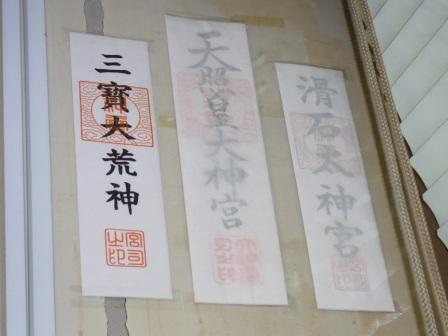 三寳大荒神
宮司之印
天照皇大神宮
滑石太神宮
宮司之印